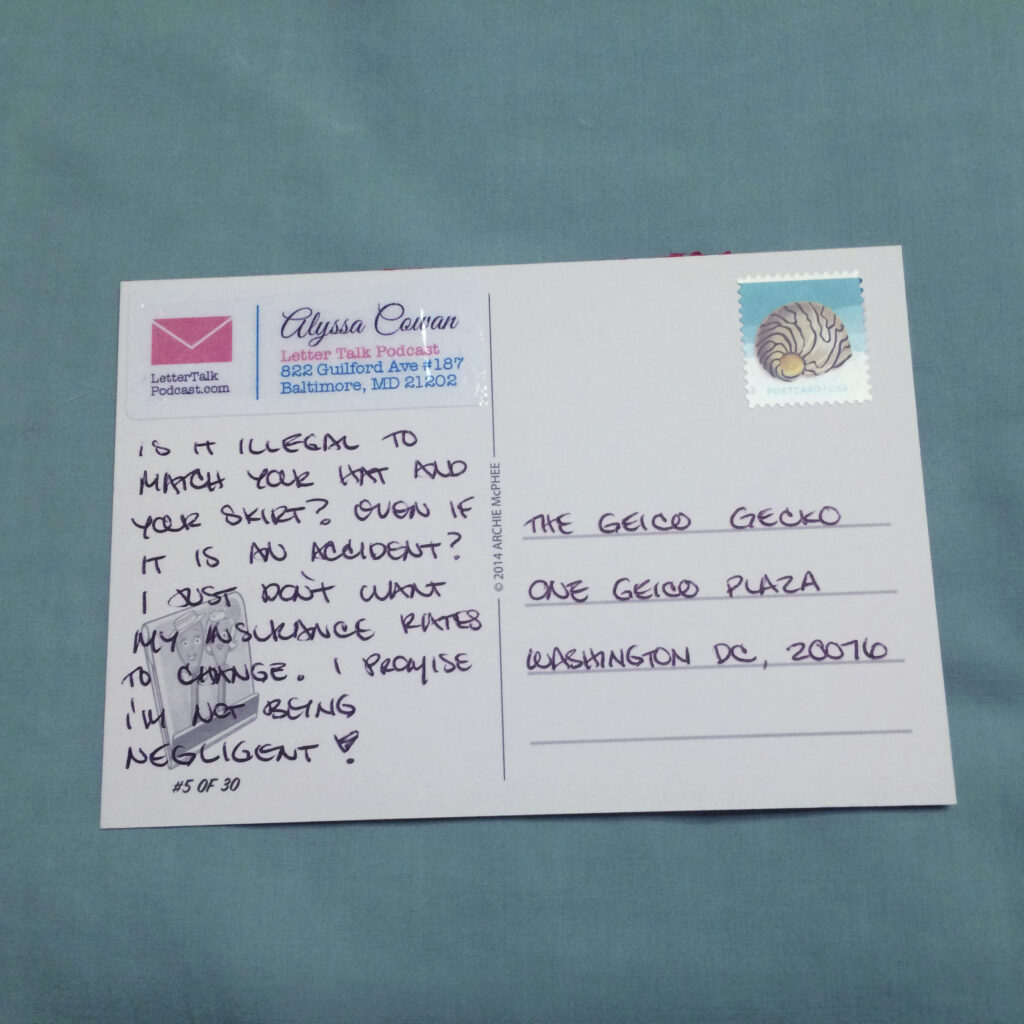 LetterTalk
Podcast.com
Alyssa Cowan
Letter Talk Podcast
822 Guilford Ave #187
Baltimore, MD 21202
IS IT ILLEGAL TO
MATCH YOUR HAT AND
YOUR SKIRT? EVEN IF
IT IS AN ACCIDENT?
I JUST DON'T WANT
MY INSURANCE RATES
TO CHANGE. I PROMISE
I'M NOT BEING
NEGLIGENT!
#5 OF 30
© 2014 ARCHIE McPHEE
POSTCARD | USA
THE GEICO GECKO
ONE GEICO PLAZA
WASHINGTON DC, 20076